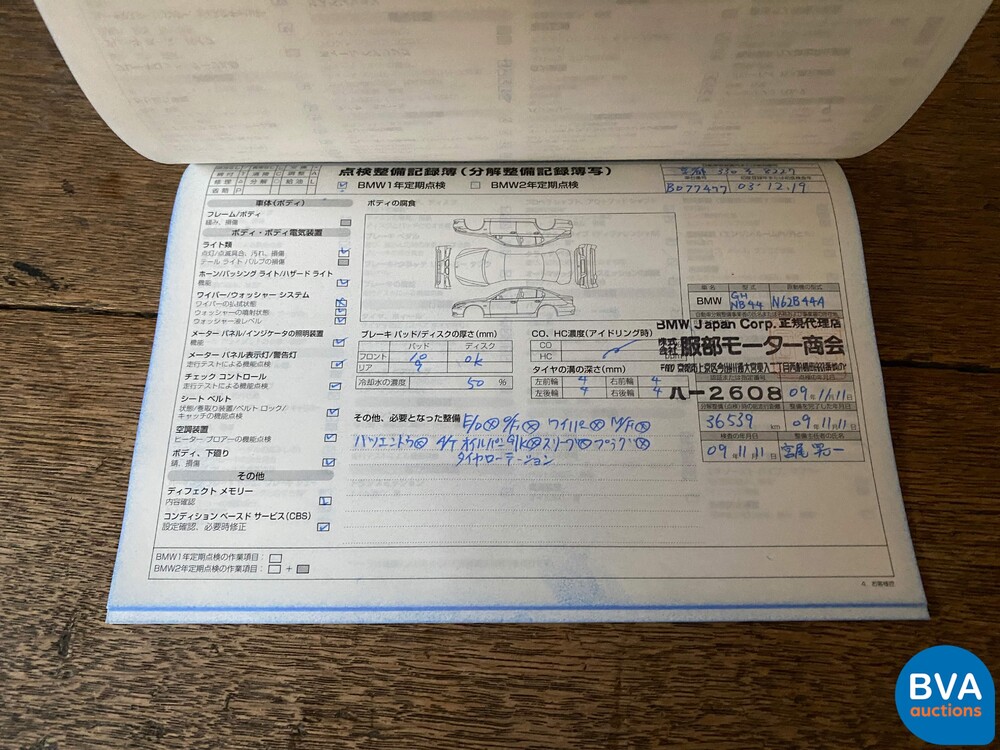 点検整備記録簿(分解整備記録簿写)
BMW1年定期点検 BMW2年定期点検
B077477 03 12.19
車体(ボディ)
フレーム/ボディ
緩み、損傷
ボディ・ボディ電気装置
ライト類
点灯/点滅具合、汚れ、損傷
テール ライト バルブの損傷
ホーン/パッシング ライト/ハザード ライト
機能
ワイパー/ウォッシャー システム
ワイパーの払拭状態
ウォッシャーの噴射状態
ウォッシャー液レベル
メーター パネル/インジケータの照明装置
機能
メーター パネル表示灯/警告灯
走行テストによる機能点検
チェック コントロール
走行テストによる機能点検
シート ベルト
状態/巻取り装置/ベルト ロック/
キャッチの機能点検
空調装置
ヒーター ブロアーの機能点検
ボディ、下廻り
錆、損傷
その他
ディフェクト メモリー
内容確認
コンディション ベースド サービス(CBS)
設定確認、必要時修正
BMW1年定期点検の作業項目:
BMW2年定期点検の作業項目: +
ボディの腐食
ブレーキ パッド/ディスクの厚さ(mm)
パッド ディスク
フロント 10 OK
リア 9
冷却水の濃度 50 %
CO、HC濃度(アイドリング時)
CO
HC
タイヤの溝の深さ(mm)
左前輪 4 右前輪 4
左後輪 4 右後輪 4
その他、必要となった整備
タイヤローテーション
車名 型式 原動機の型式
BMW GH NB44 N62B44A
BMW Japan Corp. 正規代理店
株式会社 服部モーター商会
ハー2608
09年11月11日
36539 km 09年11月11日
09年11月11日
BVA
auctions